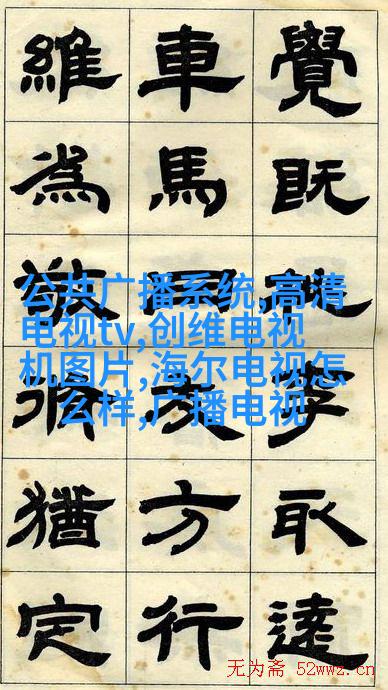 覺既李取達
車馬方行
維為敬脩猶定
公共广播系统,高清
电视tv,创维电视
机图片,海尔电视怎
么样,广播电视
无为斋 52wwz.cn